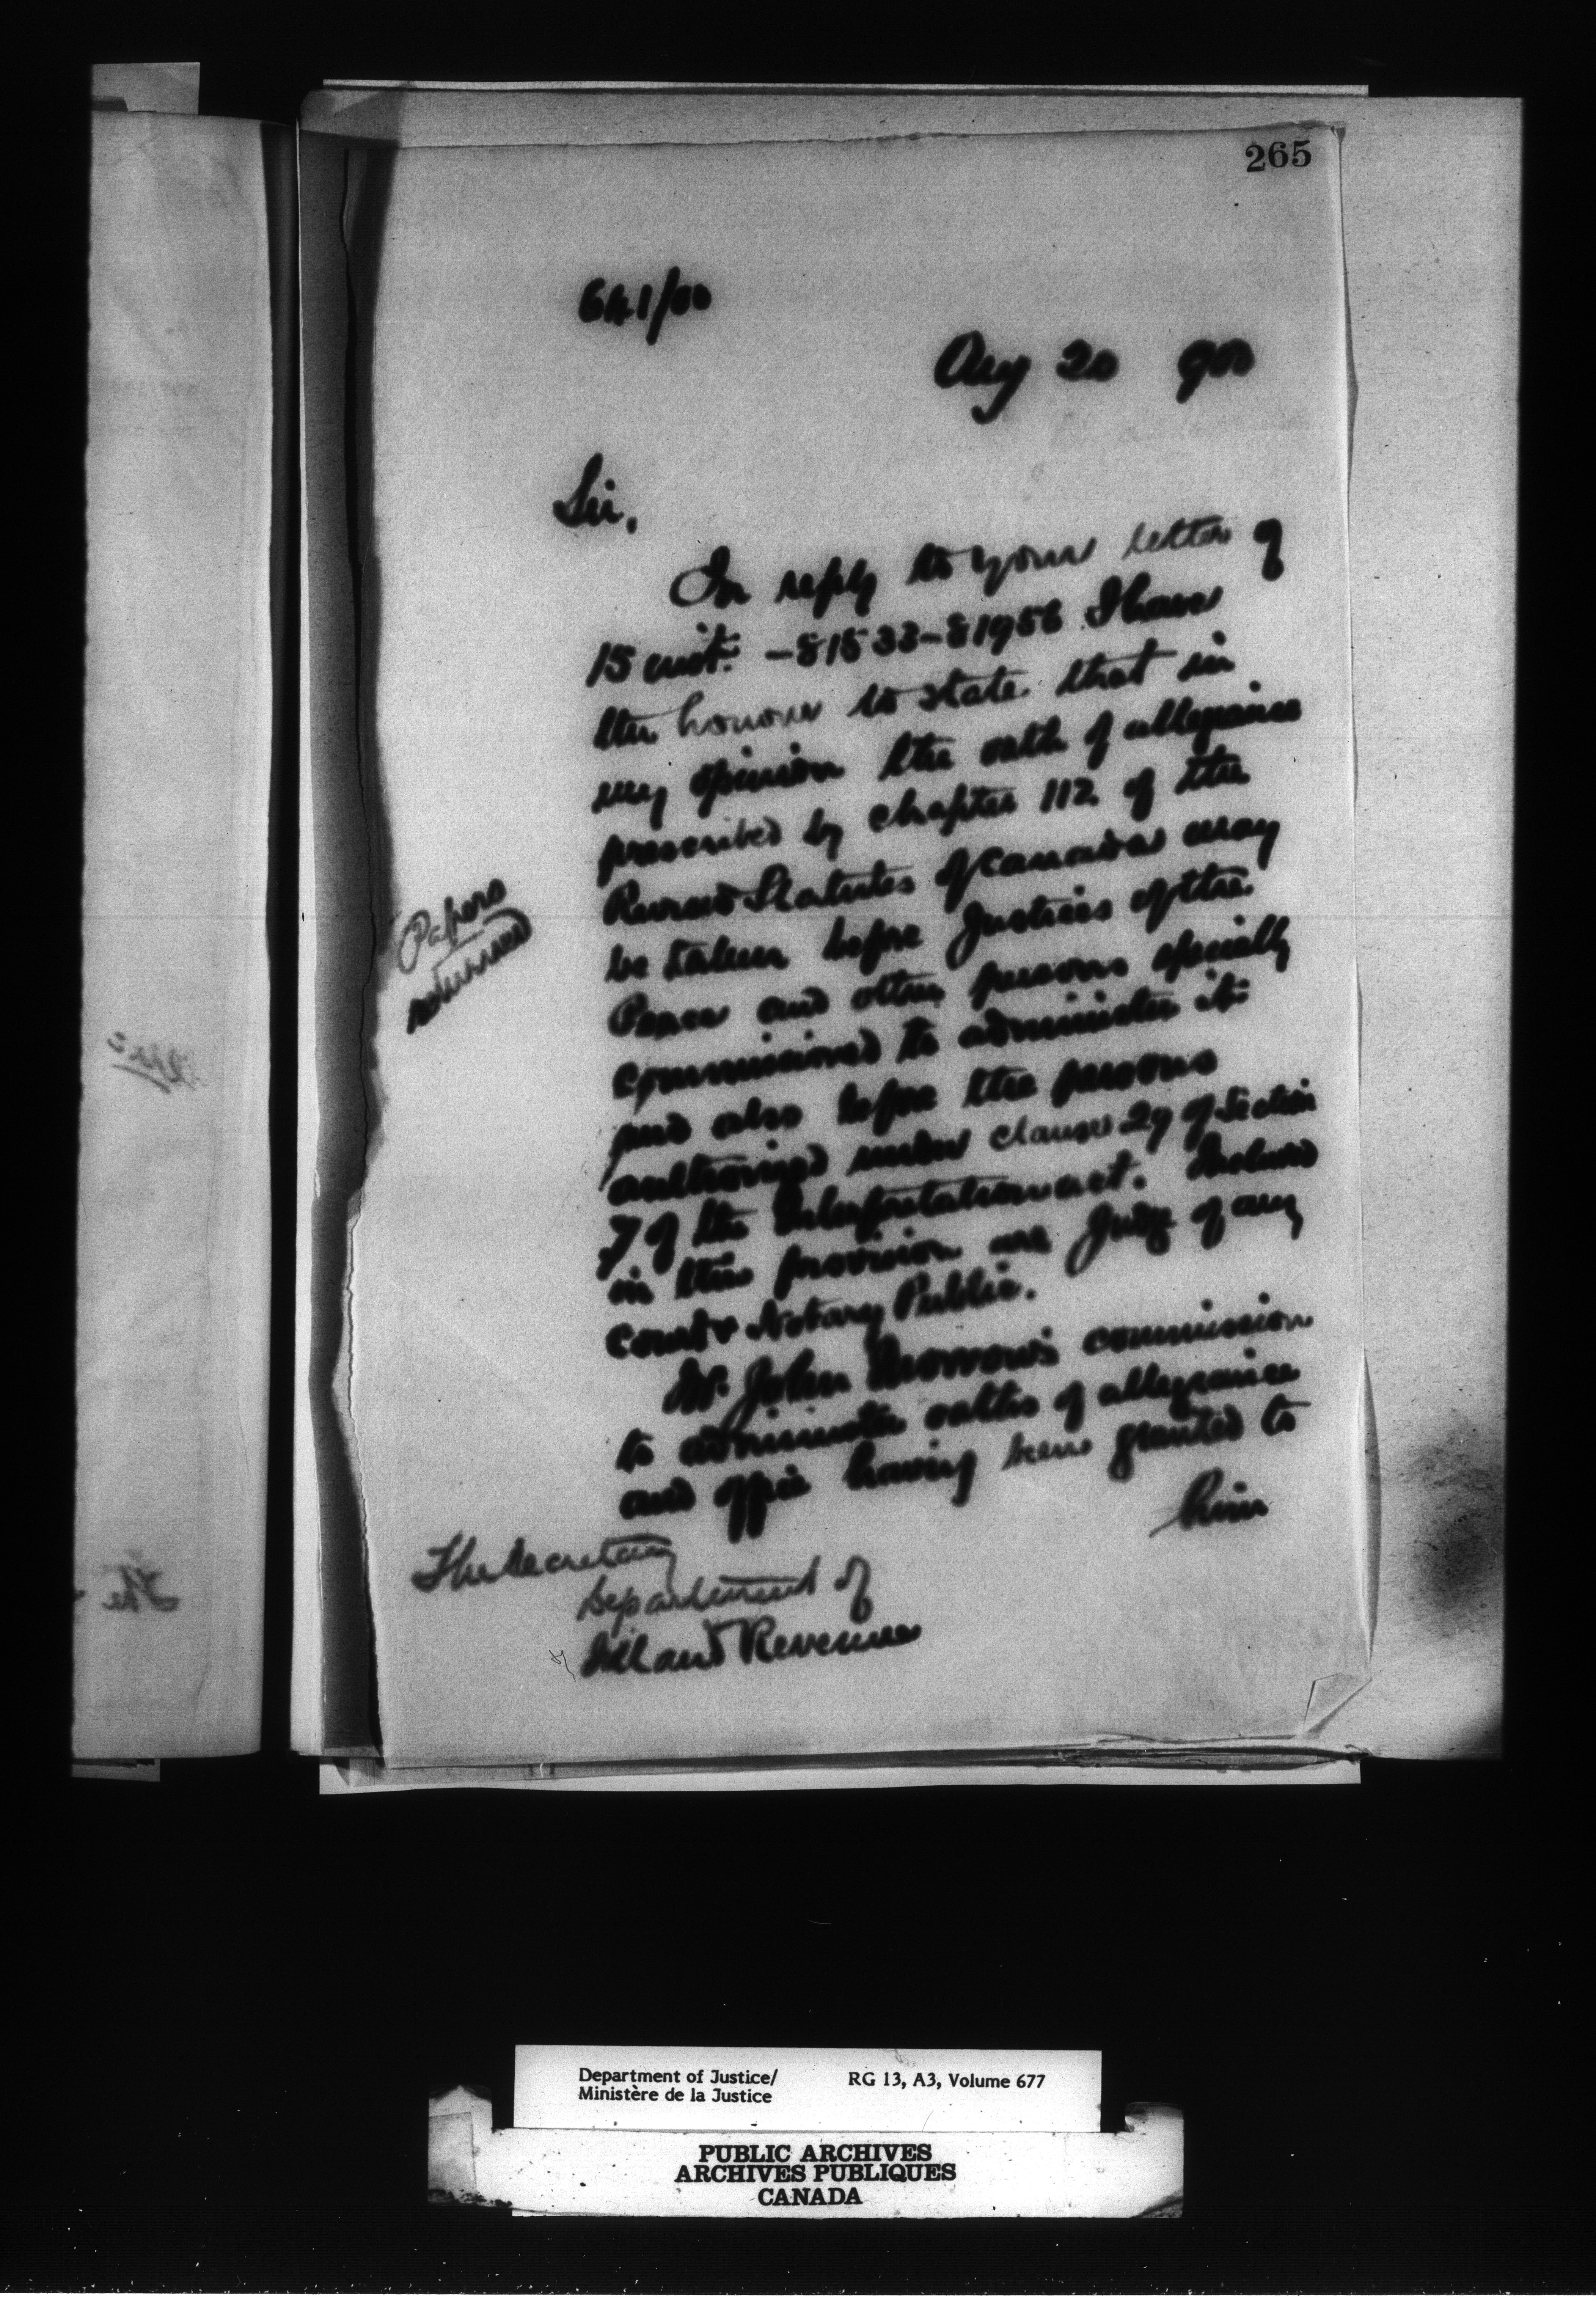 265
641/00
Aug 20 900
Sir,
In reply to your letter of
15 inst. - 81533-81956 I have
the honour to state that in
my opinion the oath of allegiance
prescribed by chapter 112 of the
Revised Statutes of Canada may
be taken before Justices of the
Peace and other persons specially
commissioned to administer it
and also before the persons
authorized under clause 29 of Section
7 of the Interpretation act. Included
in this provision are Judge of any
court & Notary Public.
Mr. John Morrow's commission
to administer oaths of allegiance
and office having been granted to
him
Papers
returned
The Secretary
Department of
Inland Revenue
The
Department of Justice/ RG 13, A3, Volume 677
Ministère de la Justice
PUBLIC ARCHIVES
ARCHIVES PUBLIQUES
CANADA